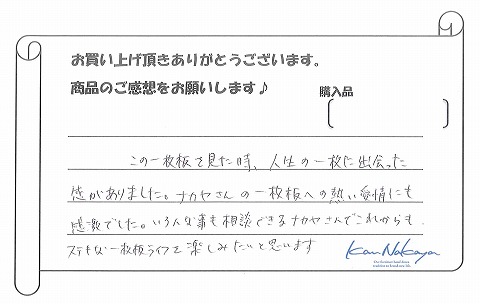 お買い上げ頂きありがとうございます。
商品のご感想をお願いします♪
購入品
この一枚板を見た時、人生の一枚に出会った
感がありました。ナカヤさんの一枚板への熱い愛情にも
感激でした。いろんな事も相談できるナカヤさんでこれからも
ステキな一枚板ライフを楽しみたいと思います
Kan Nakaya